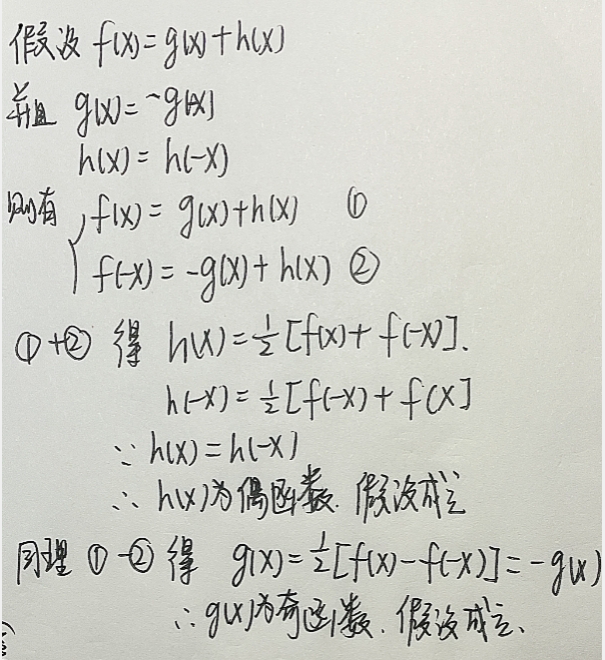 假设 f(x)=g(x)+h(x)
并且 g(x)=-g(-x)
h(x)=h(-x)
则有 f(x)=g(x)+h(x) ①
f(-x)=-g(x)+h(x) ②
①+②得 h(x)=½[f(x)+f(-x)].
h(-x)=½[f(-x)+f(x]
∵ h(x)=h(-x)
∴ h(x)为偶函数.假设成立
同理①-②得 g(x)=½[f(x)-f(-x)]=-g(x)
∴g(x)为奇函数.假设成立、